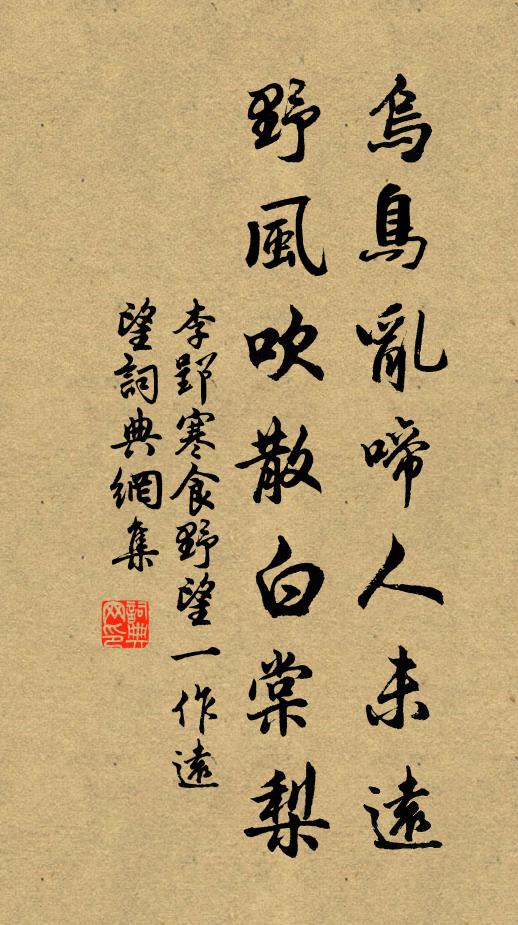 烏鳥亂啼人未遠
野風吹散白棠梨
李郢寒食野望一作遠
望詞典網集
詞典網印